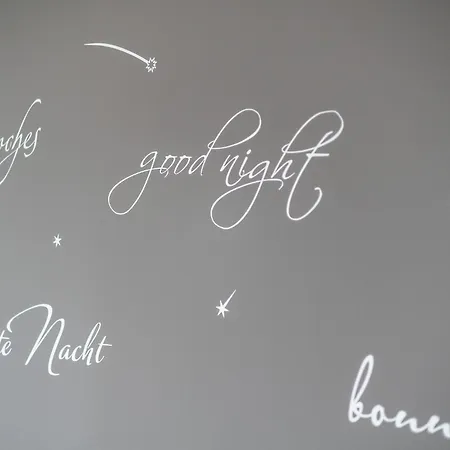 oches
good night
te Nacht
bonn